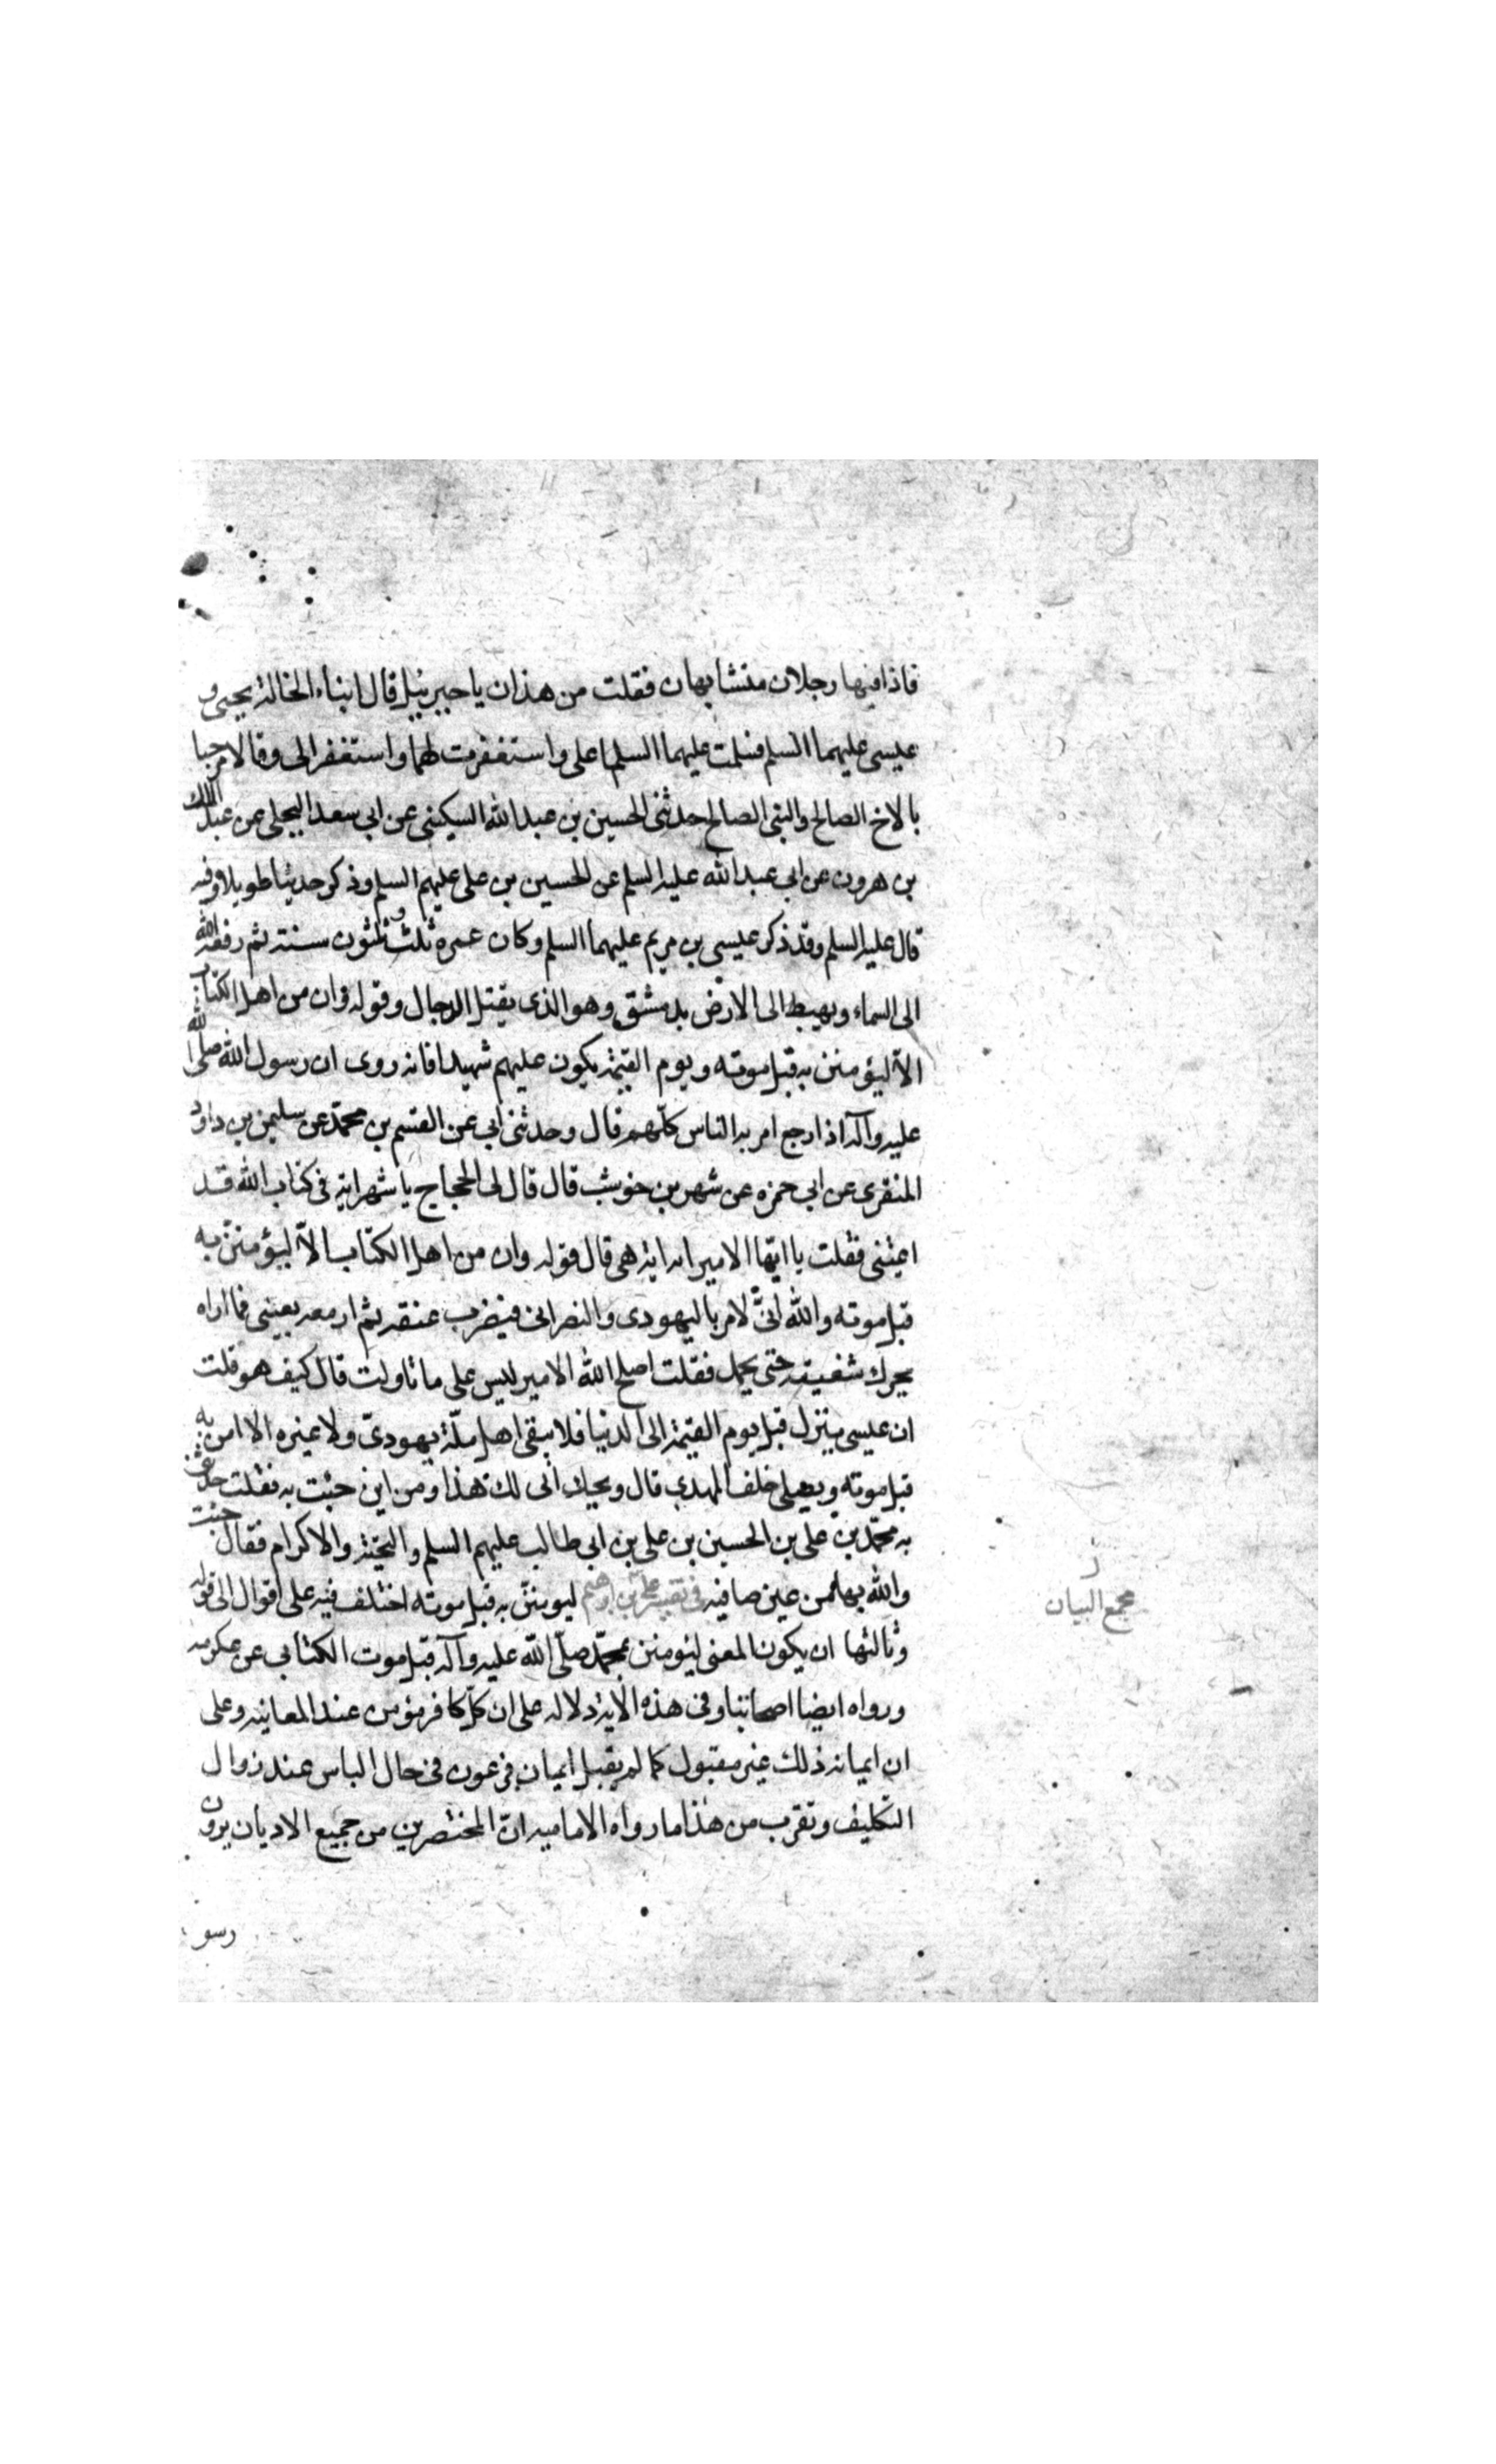 فاذا فيها رجلان متشابهان فقلت من هذان يا جبرئيل قال ابناء الخالة يحيى و
عيسى عليهما السلم فسلمت عليهما السلما على واستغفرت لهما واستغفرا لى وقالا مرحبا
بالاخ الصالح والنبى الصالح حدثنى الحسين بن عبد الله السكينى عن ابى سعد البجلى عن عبد الملك
بن هرون عن ابى عبد الله عليه السلم عن الحسين بن على عليهم السلم وذكر حديثا طويلا وفيه
قال عليه السلم وقد ذكر عيسى بن مريم عليهما السلم وكان عمره ثلث وثلثون سنة ثم رفعه الله
الى السماء ويهبط الى الارض بدمشق وهو الذى يقتل الدجال وقوله وان من اهل الكتاب
الا ليؤمنن به قبل موته ويوم القيمة يكون عليهم شهيدا فانه روى ان رسول الله صلى الله
عليه وآله اذا رجع امر به الناس كلهم قال وحدثنى ابى عن القسم بن محمد عن سليمن بن داود
المنقرى عن ابى حمزه عن شهر بن خوشب قال قال لى الحجاج يا شهر اية فى كتاب الله قد
اعيتنى فقلت يا ايها الامير ايه اية هى قال قوله وان من اهل الكتاب الا ليؤمنن به
قبل موته والله انى لامر باليهودى والنصرانى فيضرب عنقه ثم ارمقه بعينى فما اراه
يحرك شفيته حتى يحمل فقلت اصلح الله الامير ليس على ما تاولت قال كيف هو قلت
ان عيسى ينزل قبل يوم القيمة الى الدنيا فلا يبقى اهل ملة يهودى ولا غيره الا امن به
قبل موته ويصلى خلف المهدى قال ويحك انى لك هذا ومن اين جئت به فقلت حدثنى
به محمد بن على بن الحسين بن على بن ابى طالب عليهم السلم والتحية والاكرام فقال جئت
والله بها من عين صافيه فى تفسير على بن ابرهيم ليومنن به قبل موته اختلف فيه على اقوال الى قوله
وثالثها ان يكون المعنى ليومنن بمحمد صلى الله عليه وآله قبل موت الكتابى عن عكرمه
ورواه ايضا اصحابنا وفى هذه الاية دلاله على ان كل كافر يؤمن عند المعاينه وعلى
ان ايمانه ذلك غير مقبول كما لم يقبل ايمان فرعون فى حال الباس عند زوال
التكليف وتقرب من هذا ما رواه الاماميه ان المحتضرين من جميع الاديان يرون
مجمع البيان
رسو